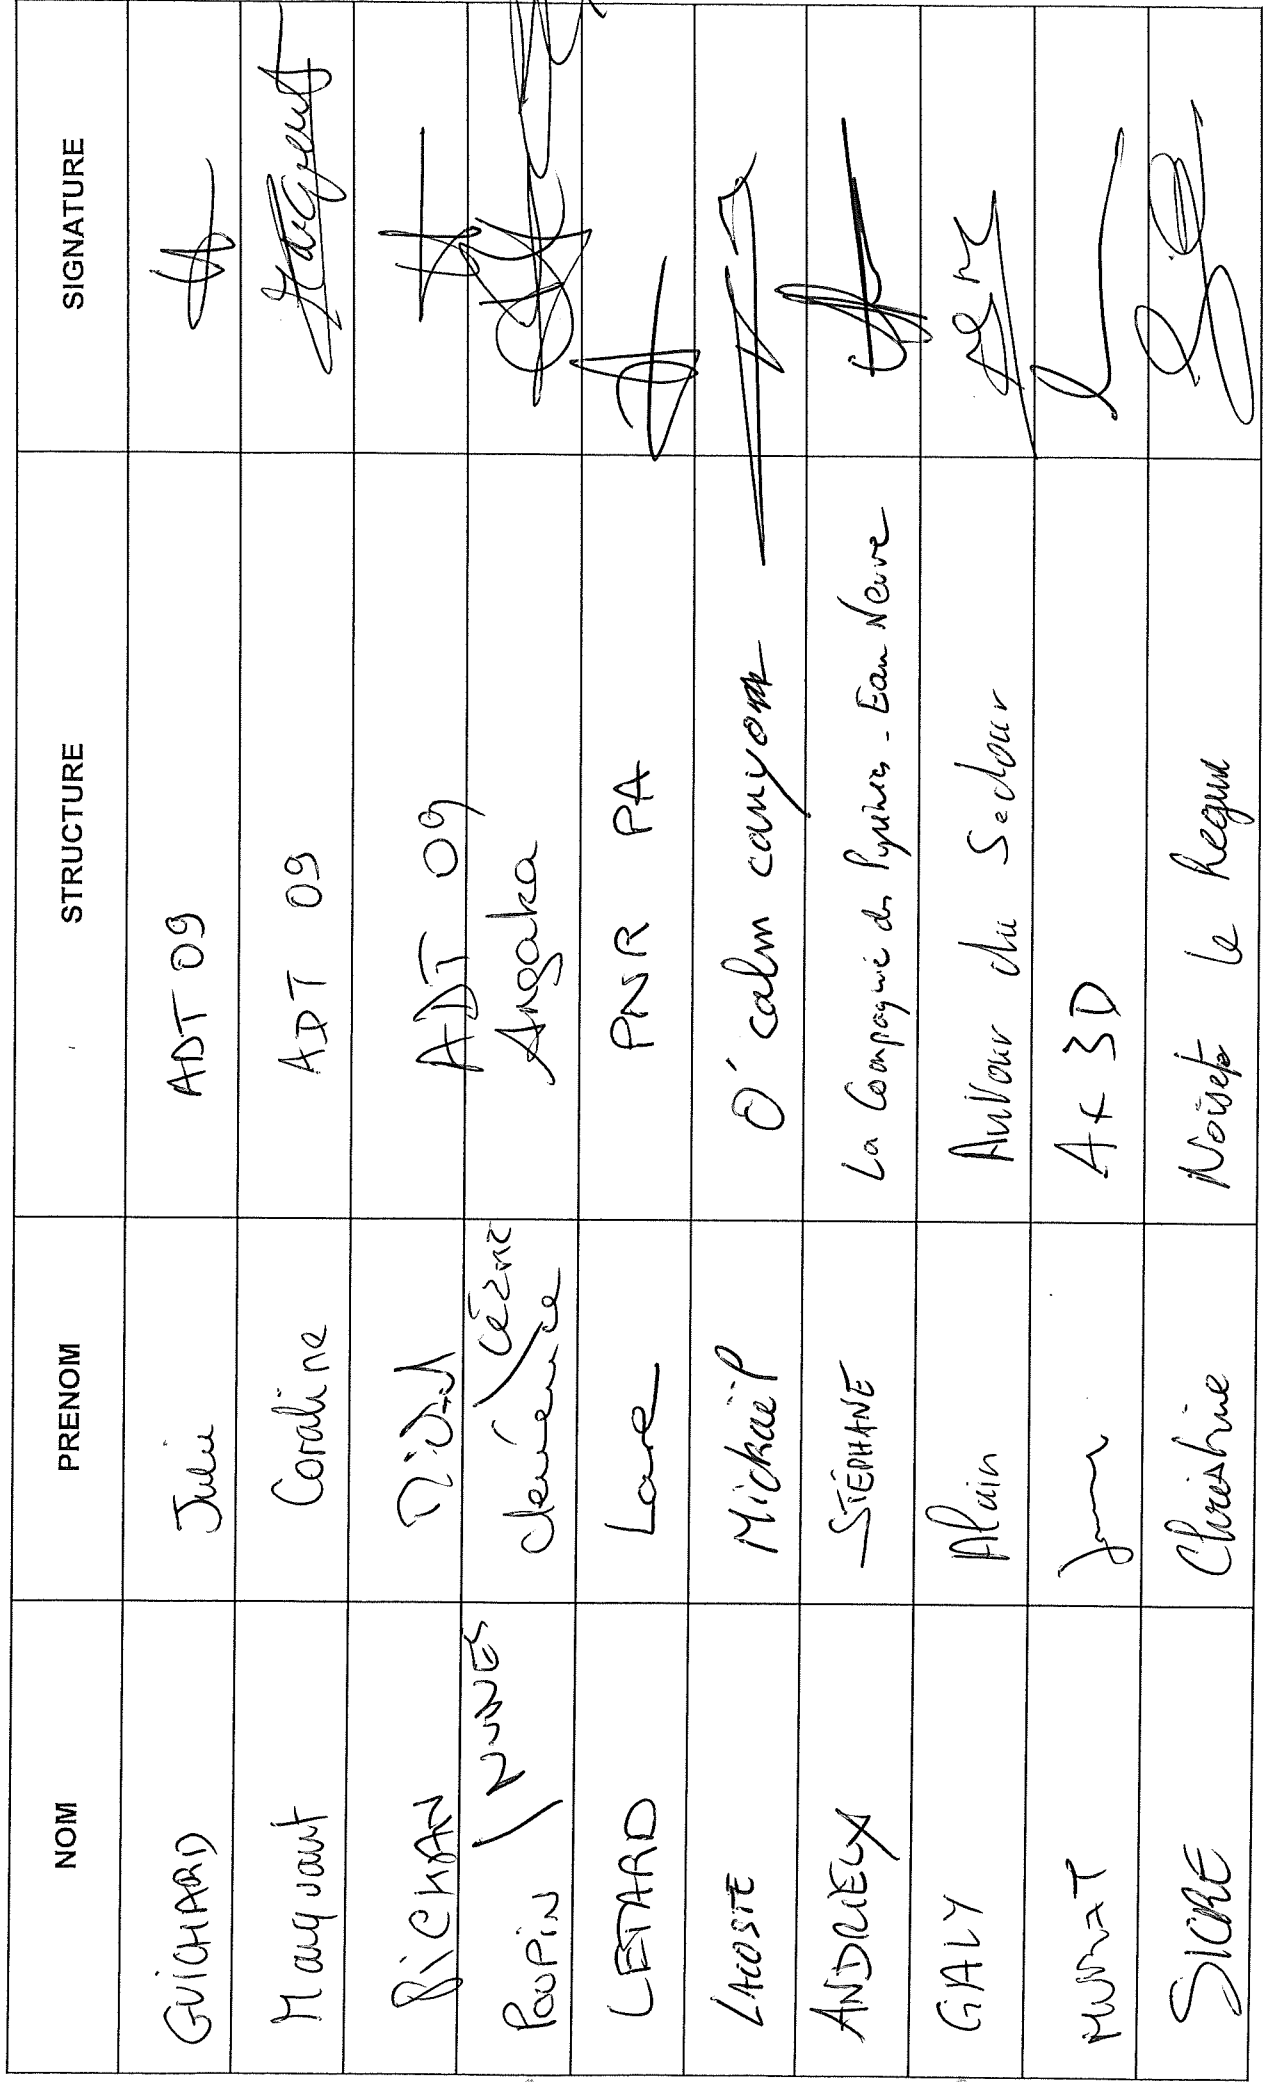 NOM PRENOM STRUCTURE SIGNATURE
GUICHARD Julie ADT 09
Marquant Coraline ADT 09
ADT 09
POUPIN / NUNES clémence / Angaka
LETARD Laure PNR PA
LACOSTE Mickaël O' calm canyon
ANDRIEUX STÉPHANE La Compagnie des Pyrénées - Eau Neuve
GALY Alain Autour du Sedour
MURAT AX 3D
SICRE Christine